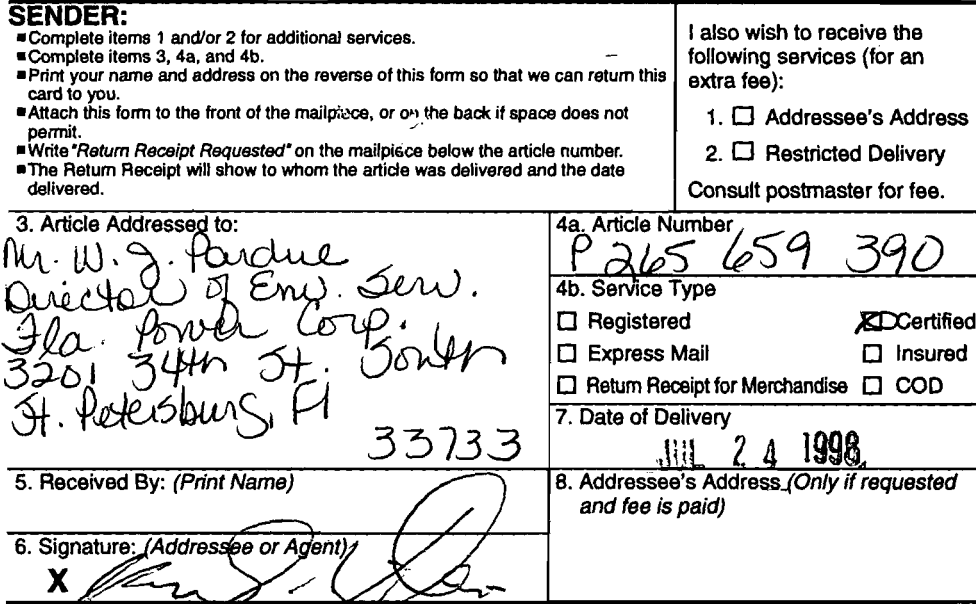 SENDER:
■Complete items 1 and/or 2 for additional services.
■Complete items 3, 4a, and 4b.
■Print your name and address on the reverse of this form so that we can return this
card to you.
■Attach this form to the front of the mailpiece, or on the back if space does not
permit.
■Write "Return Receipt Requested" on the mailpiece below the article number.
■The Return Receipt will show to whom the article was delivered and the date
delivered.
I also wish to receive the
following services (for an
extra fee):
1. ☐ Addressee's Address
2. ☐ Restricted Delivery
Consult postmaster for fee.
3. Article Addressed to:
Mr. W. J. Pardue
Director of Env. Serv.
Fla. Power Corp.
3201 34th St. South
St. Petersburg, Fl
33733
4a. Article Number
P 265 659 390
4b. Service Type
☐ Registered
☒ Certified
☐ Express Mail
☐ Insured
☐ Return Receipt for Merchandise
☐ COD
7. Date of Delivery
JUL 24 1998
5. Received By: (Print Name)
8. Addressee's Address (Only if requested
and fee is paid)
6. Signature: (Addressee or Agent)
X